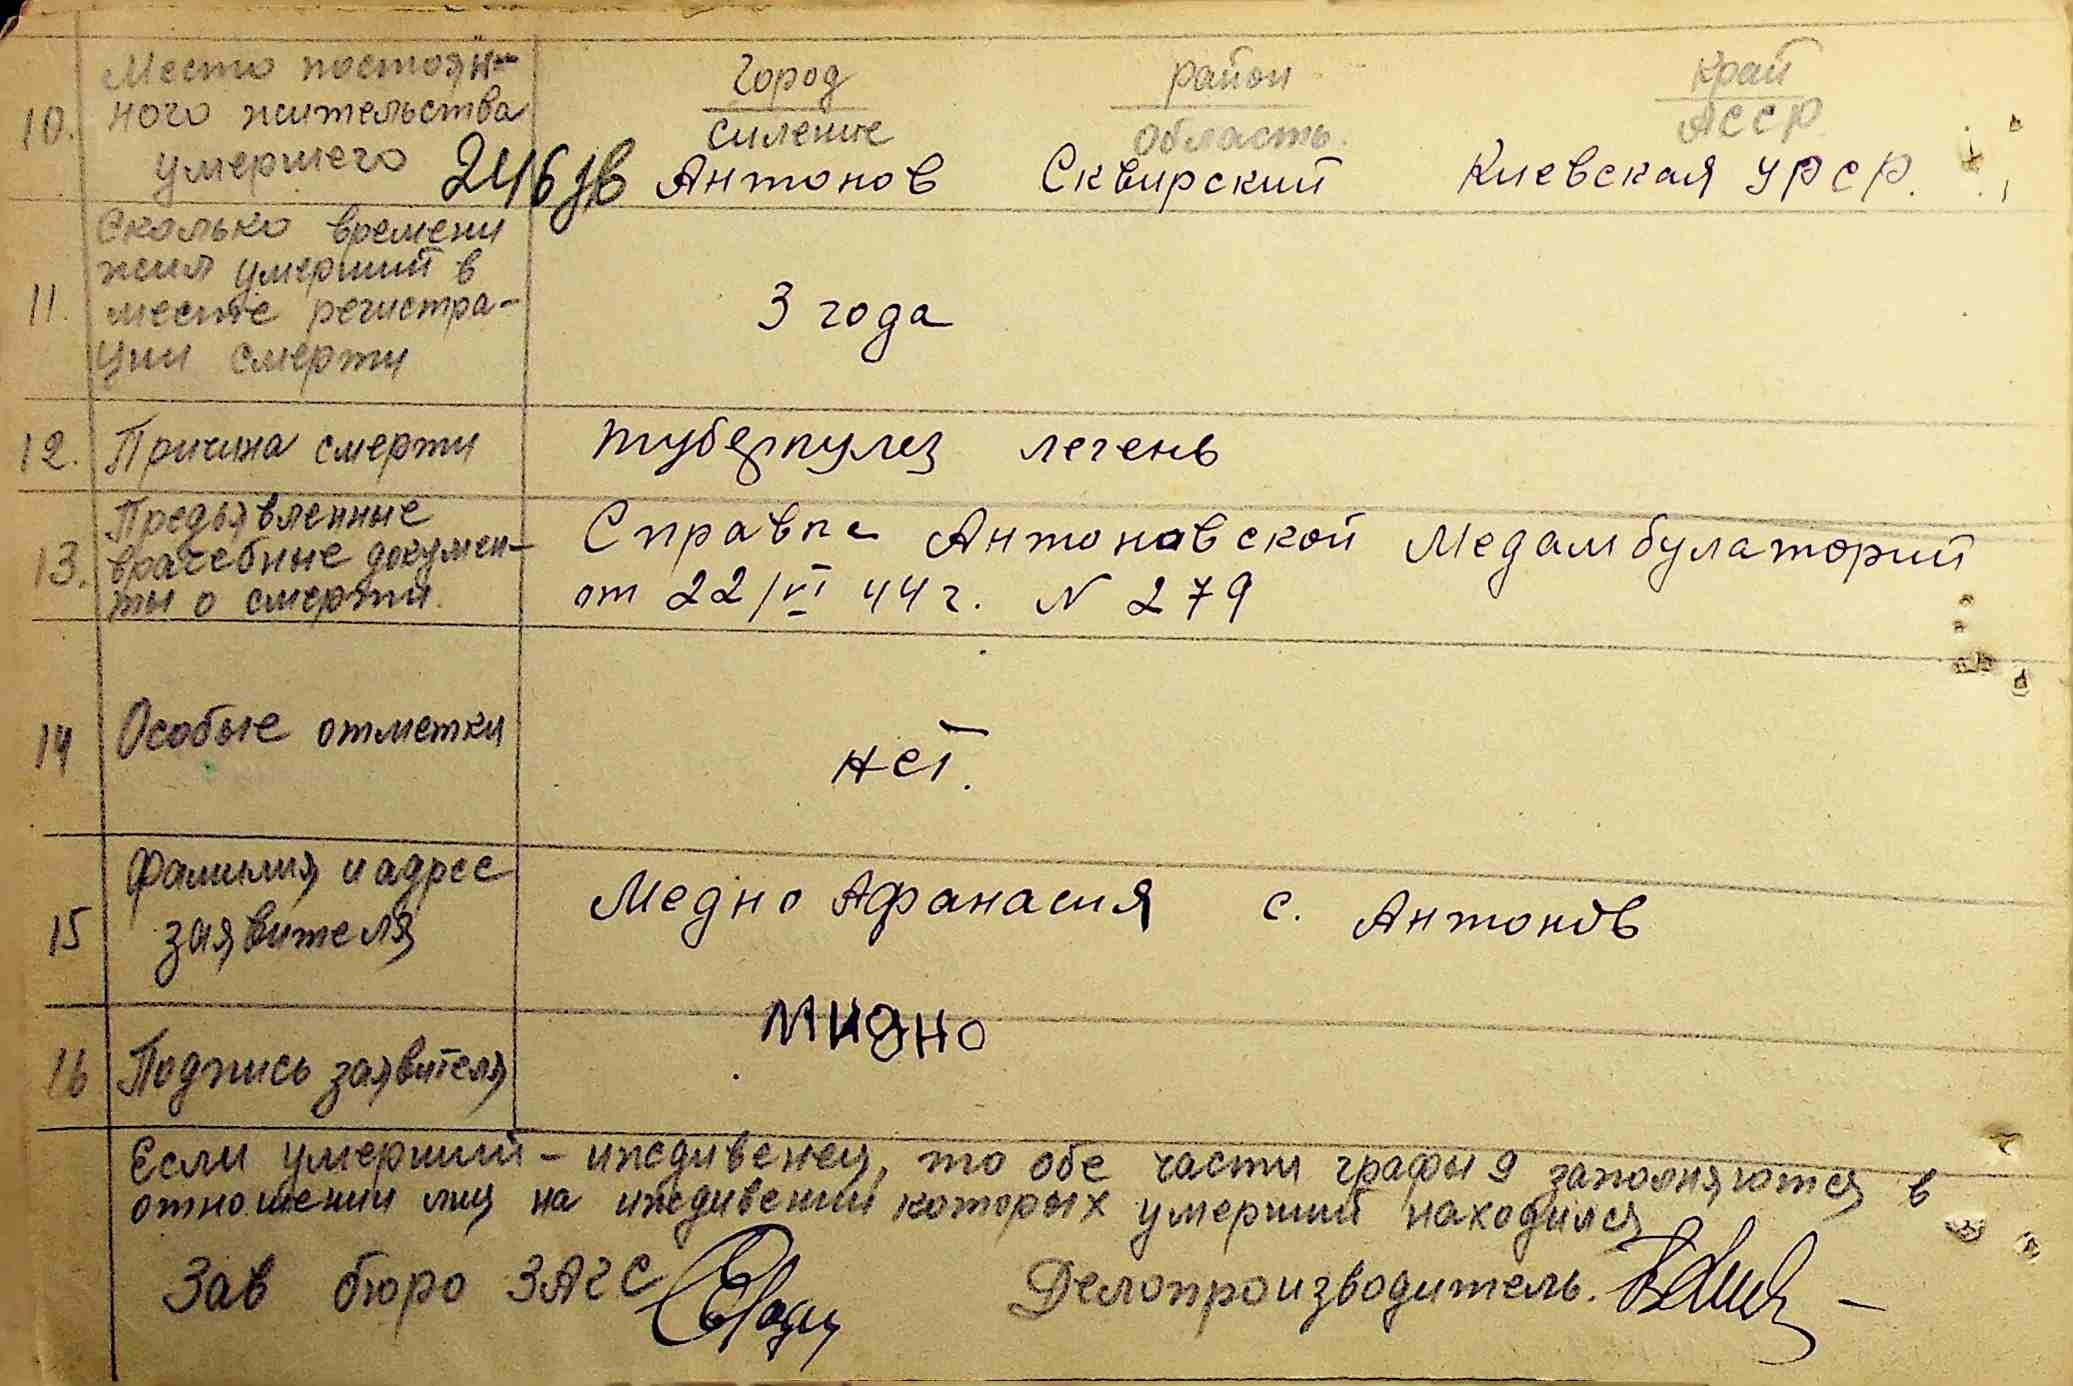 10. Место постоян-
ного жительства
умершего
город район край
силение область. АССР
Антонов Сквирский Киевская УРСР.
11. Сколько времени
жил умерший в
месте регистра-
ции смерти
3 года
12. Причина смерти туберкулез легень
13. Предъявленные
врачебные докумен-
ты о смерти.
Справка Антоновской Медамбулаторий
от 22/VI 44 г. N 279
14 Особые отметки
нет.
15 Фамилия и адрес
заявителя
Медно Афанасия с. Антонов
16 Подпись заявителя
Мидно
Если умерший - иждивенец, то обе части графы 9 заполняются в
отношении лиц на иждивении которых умерший находился
Зав бюро ЗАГС Делопроизводитель.